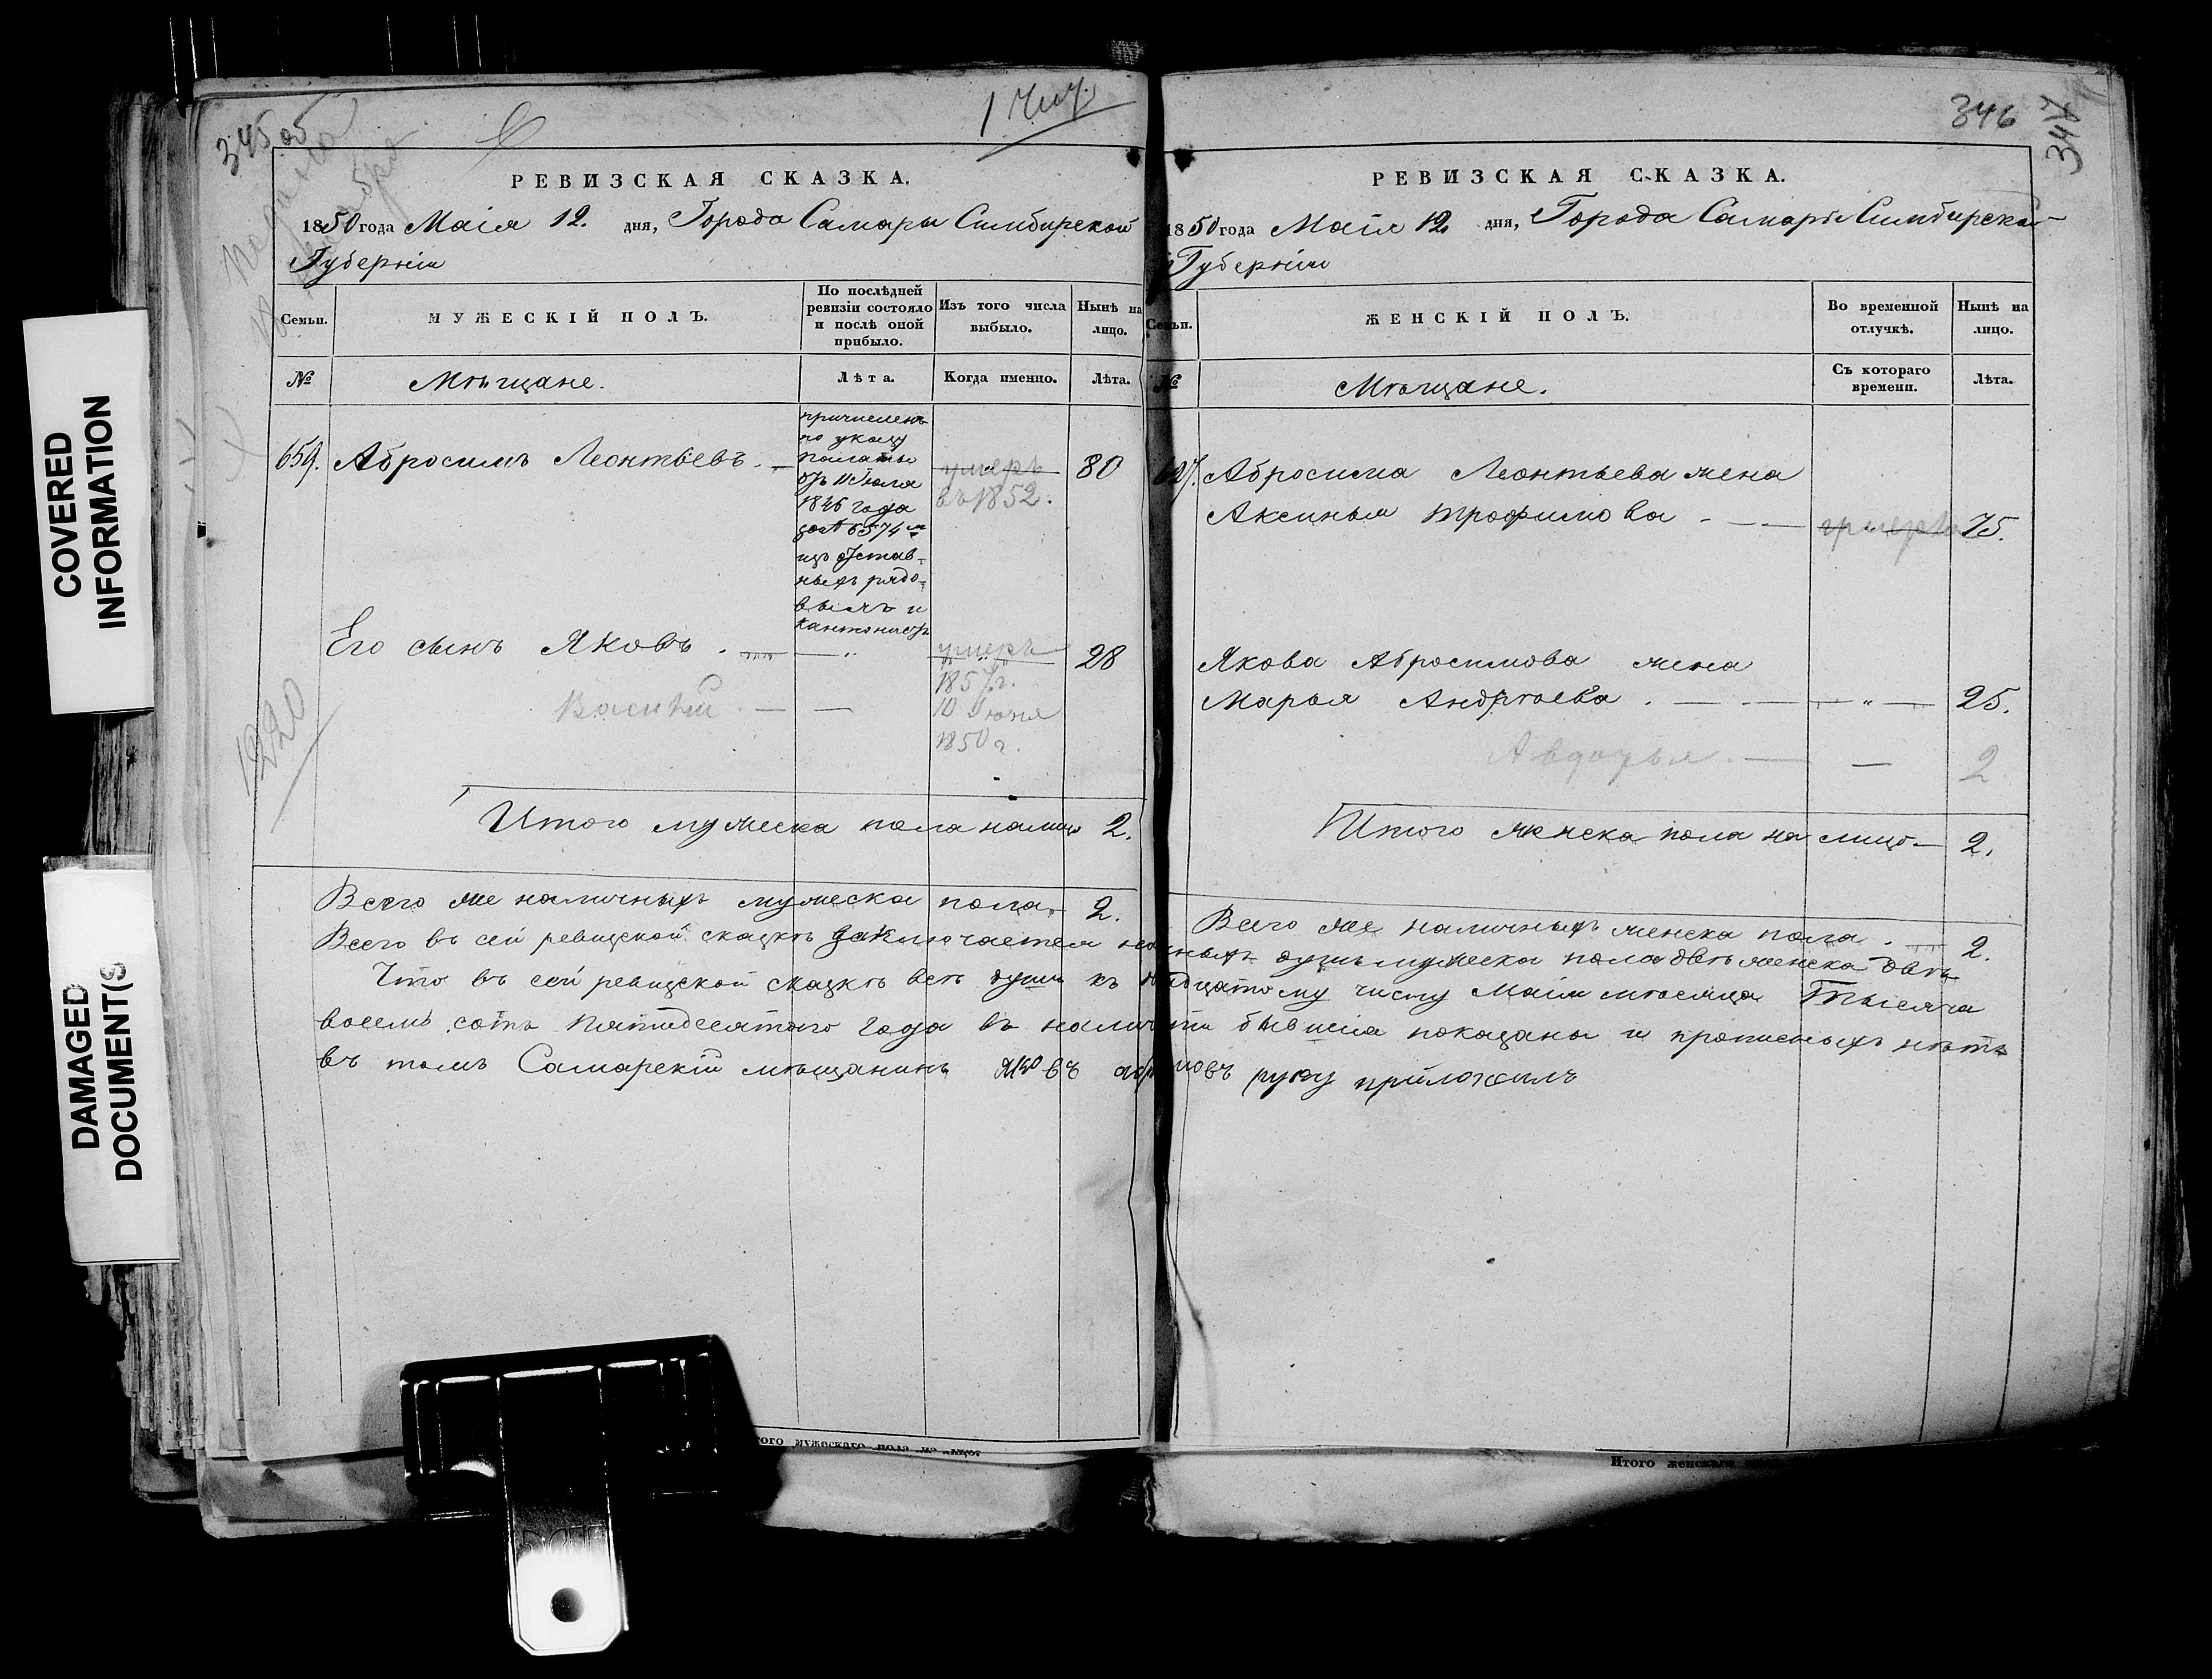 345 об
1 Чит.
РЕВИЗСКАЯ СКАЗКА.
1850 года Маія 12. дня, Города Самары Симбирской
Губерніи
Семьи.
МУЖЕСКІЙ ПОЛЪ.
По послѣдней
ревизіи состояло
и послѣ оной
прибыло.
Изъ того числа
выбыло.
Нынѣ на
лицо.
№
Мѣщане.
Лѣта.
Когда именно.
Лѣта.
659. Абросимъ Леонтьевъ
причисленъ
по указу
палаты
отъ 11 Іюля
1846 года
за № 6574м
изъ отстав-
ныхъ рядо-
вымъ и
кантонистъ
умеръ
въ 1852.
80
Его сынъ Яковъ
умеръ
1857г.
28
Василій
10 Іюня
1850 г.
1220
Итого мужеска пола налицо 2.
Всего же наличныхъ мужеска пола 2.
346
347
РЕВИЗСКАЯ СКАЗКА.
1850 года Маія 12. дня, Города Самары Симбирской
Губерніи
Семьи.
ЖЕНСКІЙ ПОЛЪ.
Во временной
отлучкѣ.
Нынѣ на
лицо.
№
Мѣщане.
Съ котораго
времени.
Лѣта.
Абросима Леонтьева жена
Аксинья Трофимова 75.
Якова Абросимова жена
Марья Андрѣева 25.
Авдотья 2
Итого женска пола на лицо 2.
Всего же наличныхъ женска пола 2.
Всего въ сей ревизской сказкѣ заключается душъ мужеска пола двѣ женска двѣ
Что въ сей ревизской сказкѣ всѣ души къ числу Маія мѣсяца Тысяча
восемь сотъ Пятидесятаго года въ наличіи бывшія показаны и прописныхъ нѣтъ
въ томъ Самарскій мѣщанинъ Яковъ руку приложилъ
ого мужескаго пола на лицо.
Итого женскаго
COVERED
INFORMATION
DAMAGED
DOCUMENT(S